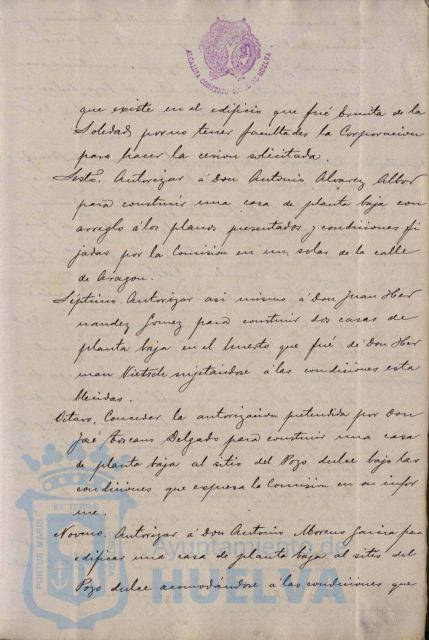 ALCALDIA CONSTITUCIONAL DE HUELVA
que existe en el edificio que fué Ermita de la
Soledad, por no tener facultades la Corporacion
para hacer la cesion solicitada.
Sesto. Autorizar á Don Antonio Alvarez Albor
para construir una casa de planta baja con
arreglo á los planos presentados y condiciones fi
jadas por la Comision en un solar de la calle
de Aragon.
Séptimo. Autorizar asi mismo á Don Juan Her
nandez Gomez para construir dos casas de
planta baja en el huerto que fué de Don Her
man Nietsch sujetándose á las condiciones esta
blecidas.
Octavo. Conceder la autorizacion pretendida por Don
José Toscano Delgado para construir una casa
de planta baja al sitio del Pozo dulce bajo las
condiciones que espresa la Comision en su infor
me.
Noveno. Autorizar á Don Antonio Moreno Garcia para
edificar una casa de planta baja al sitio del
Pozo dulce acomodándose á las condiciones que
PORTUS MARIS ET
Ayuntamiento de
HUELVA